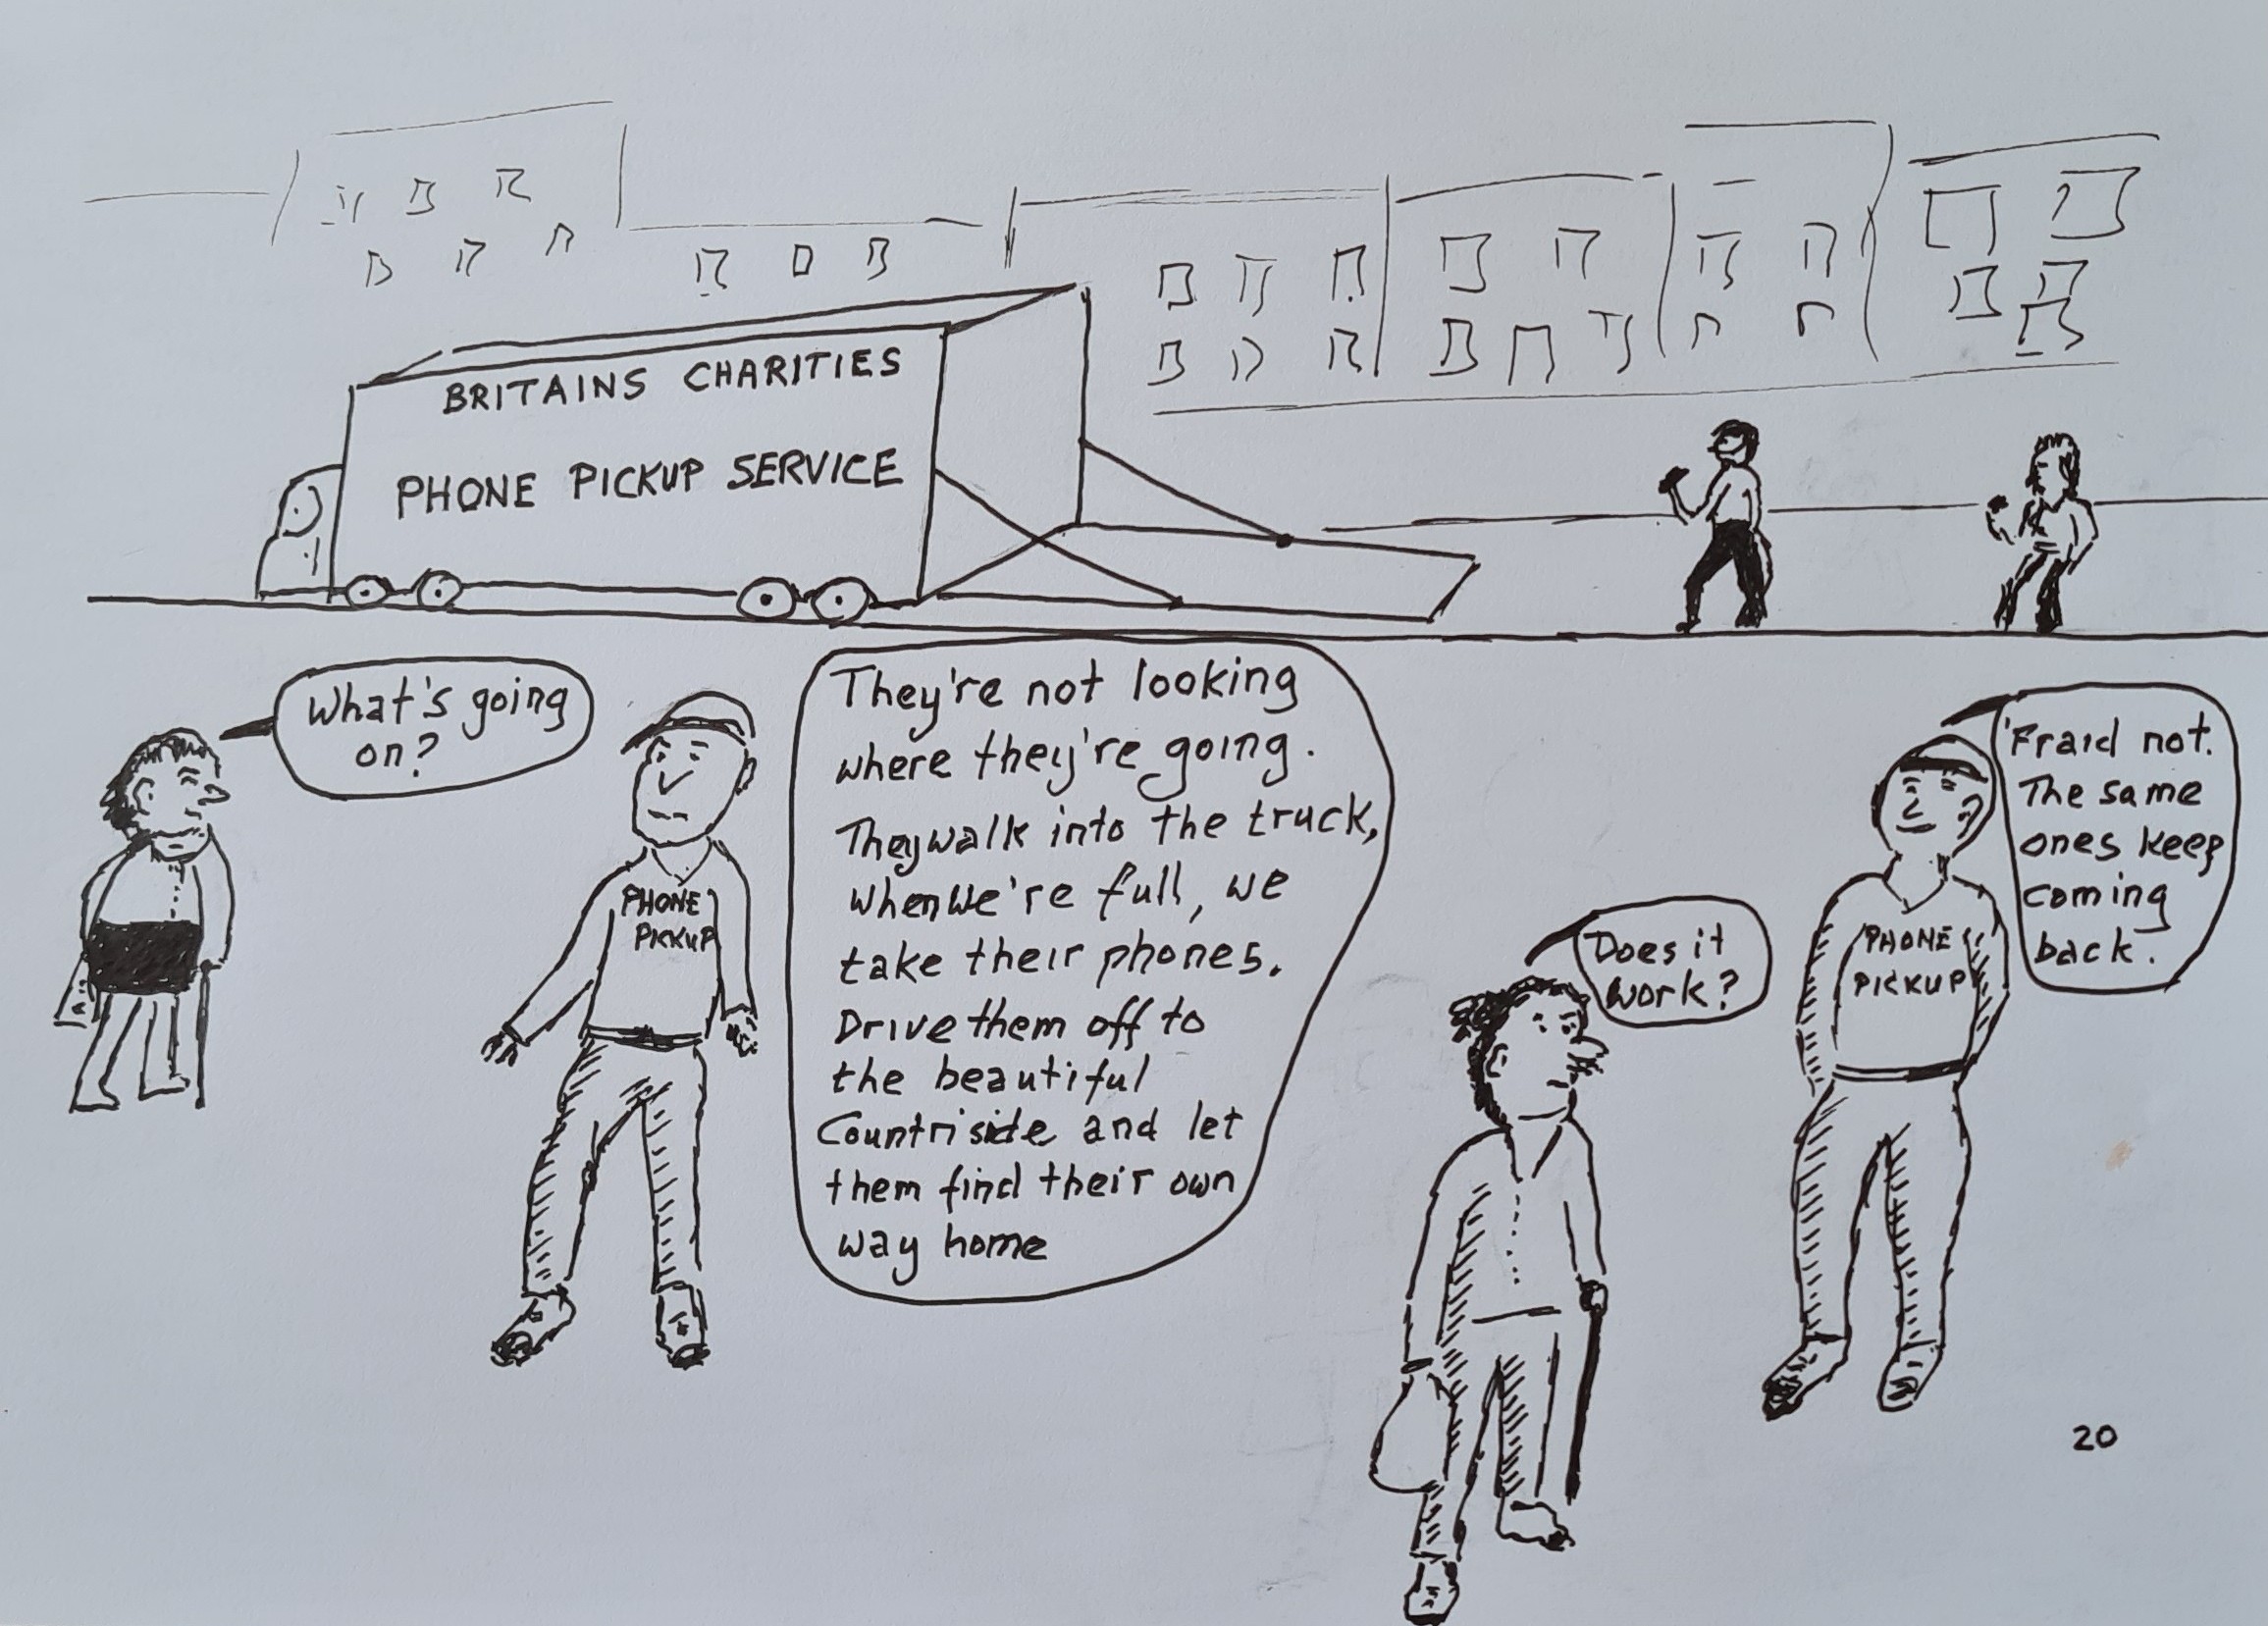 BRITAINS CHARITIES
PHONE PICKUP SERVICE
What's going
on?
PHONE
PICKUP
They're not looking
where they're going.
They walk into the truck,
when we're full, we
take their phones.
Drive them off to
the beautiful
Countriside and let
them find their own
way home
Does it
work?
PHONE
PICKUP
'Fraid not.
The same
ones keep
coming
back.
20